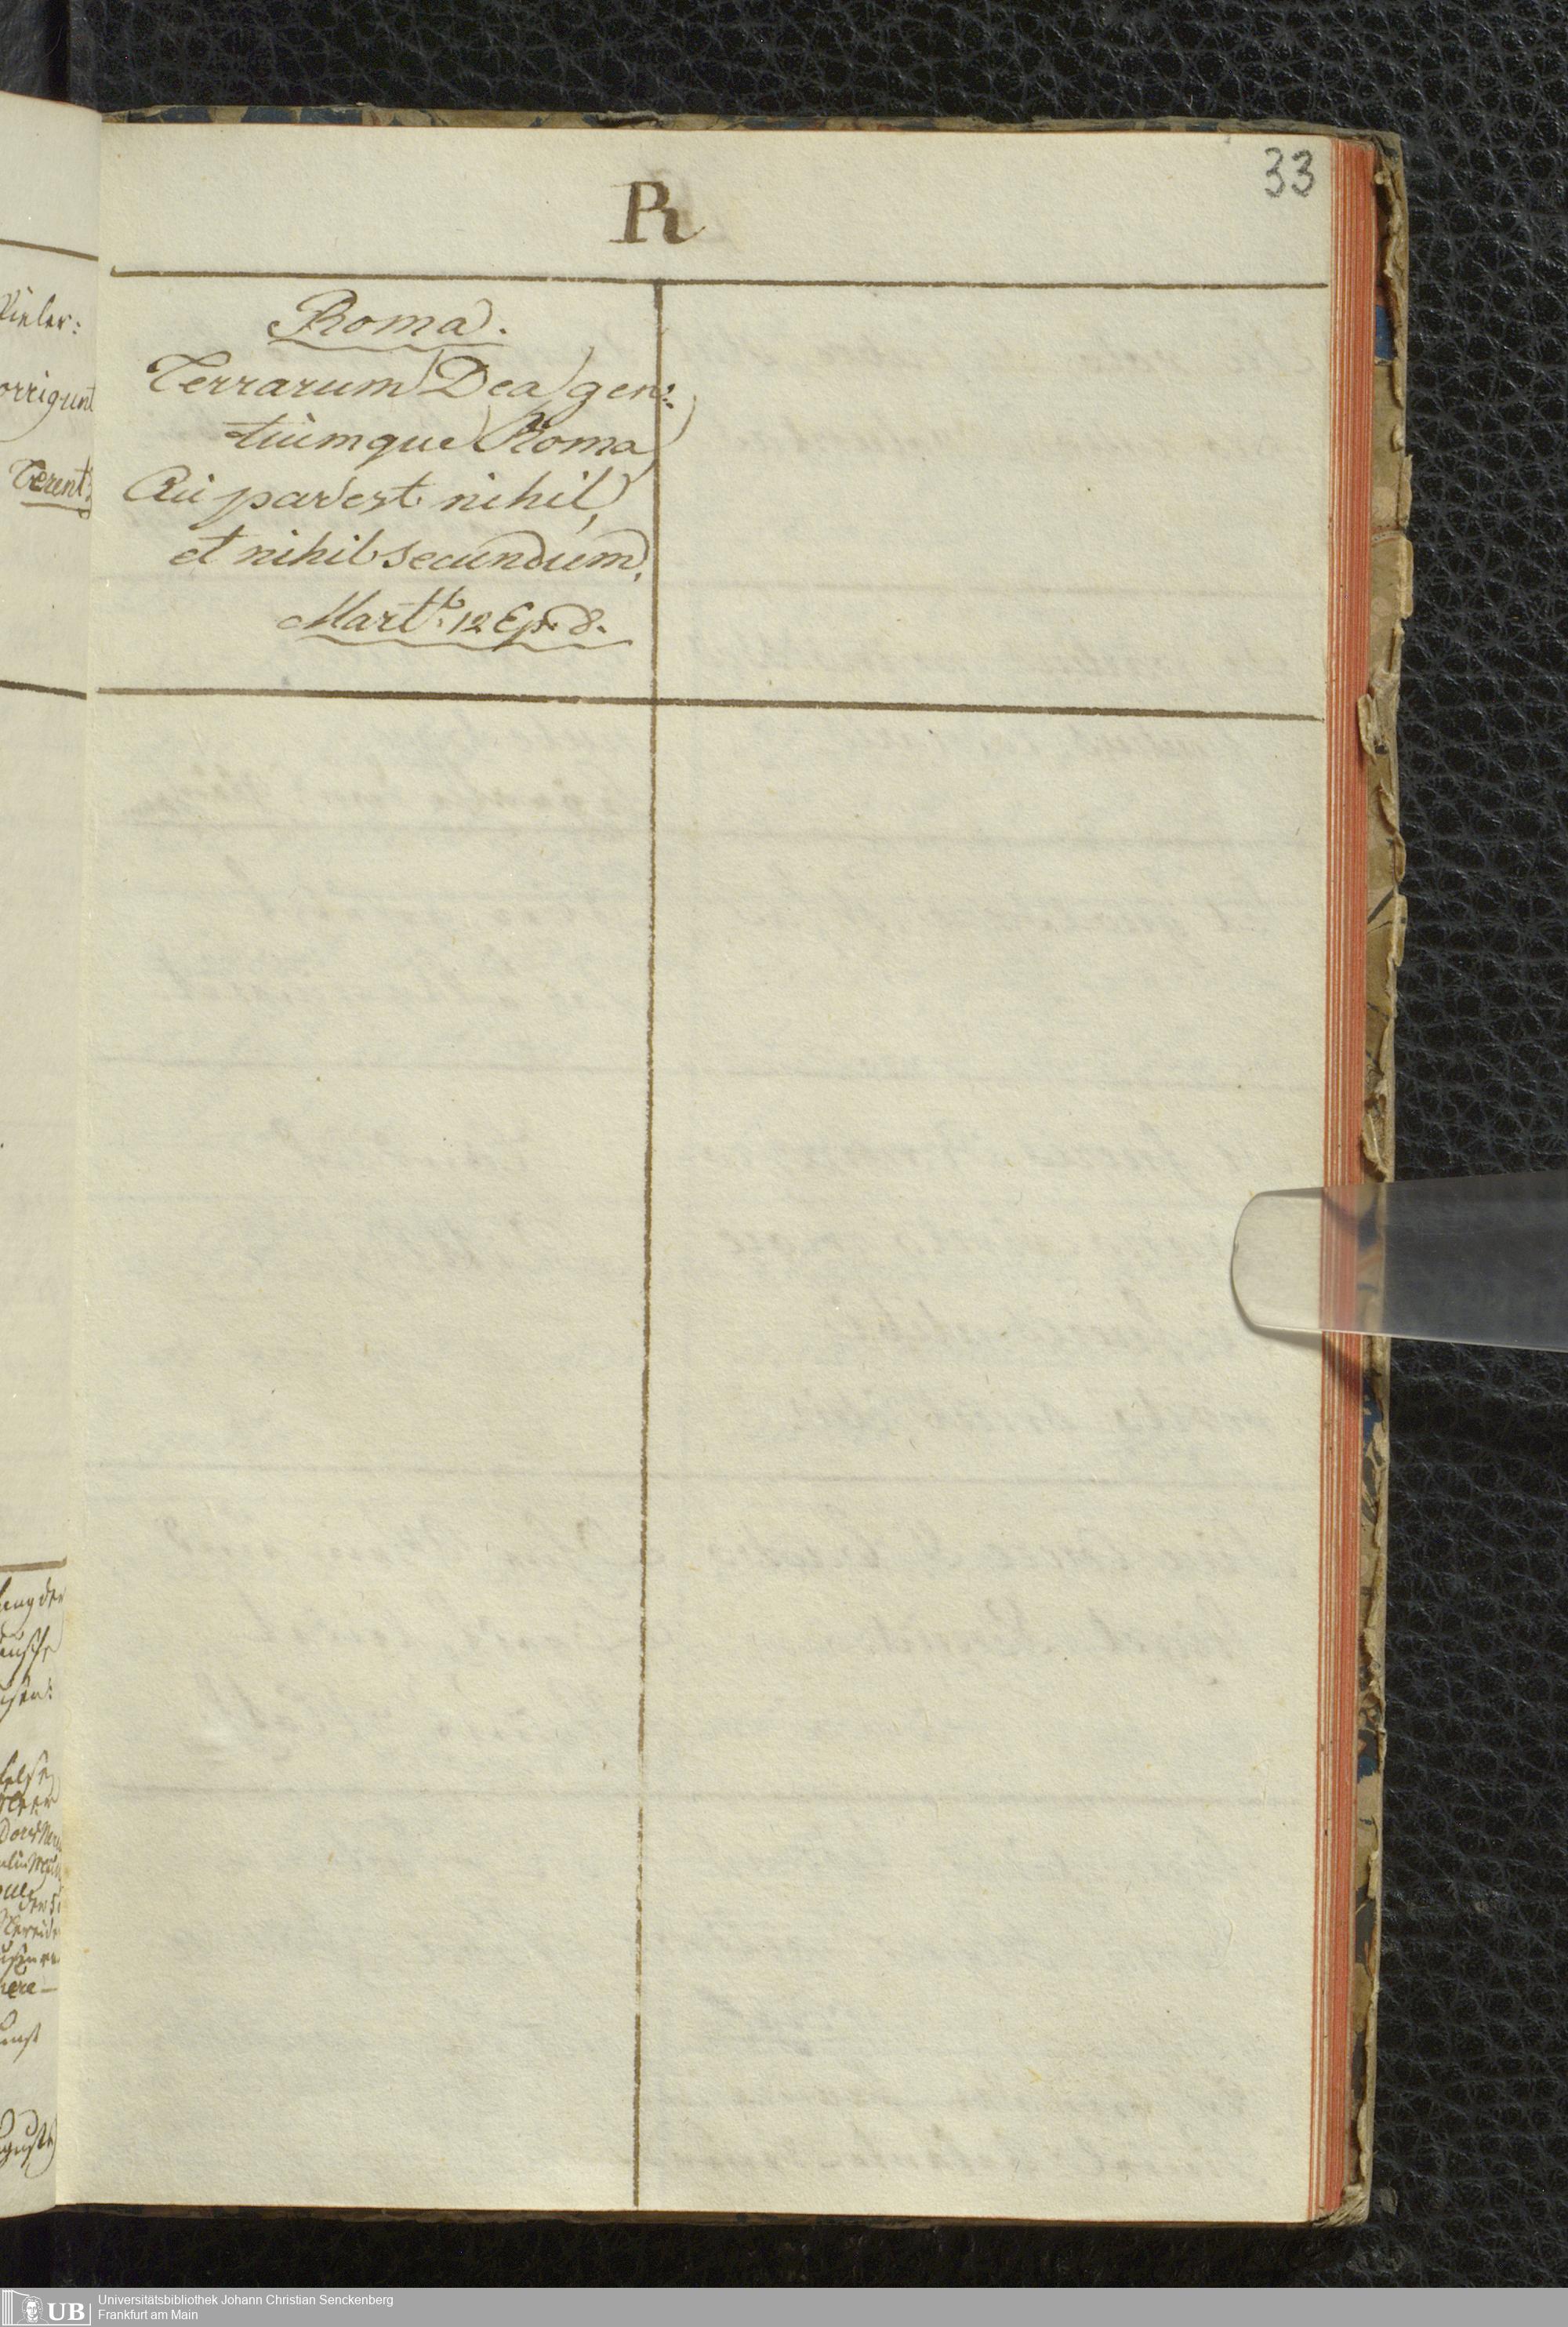 33
R
Roma.
Terrarum Dea gen:
tiumque Roma
Cui par est nihil,
et nihil secundum,
Mart. l. 12 Ep. 8.
orrigunt
Terent:
UB
Universitätsbibliothek Johann Christian Senckenberg
Frankfurt am Main